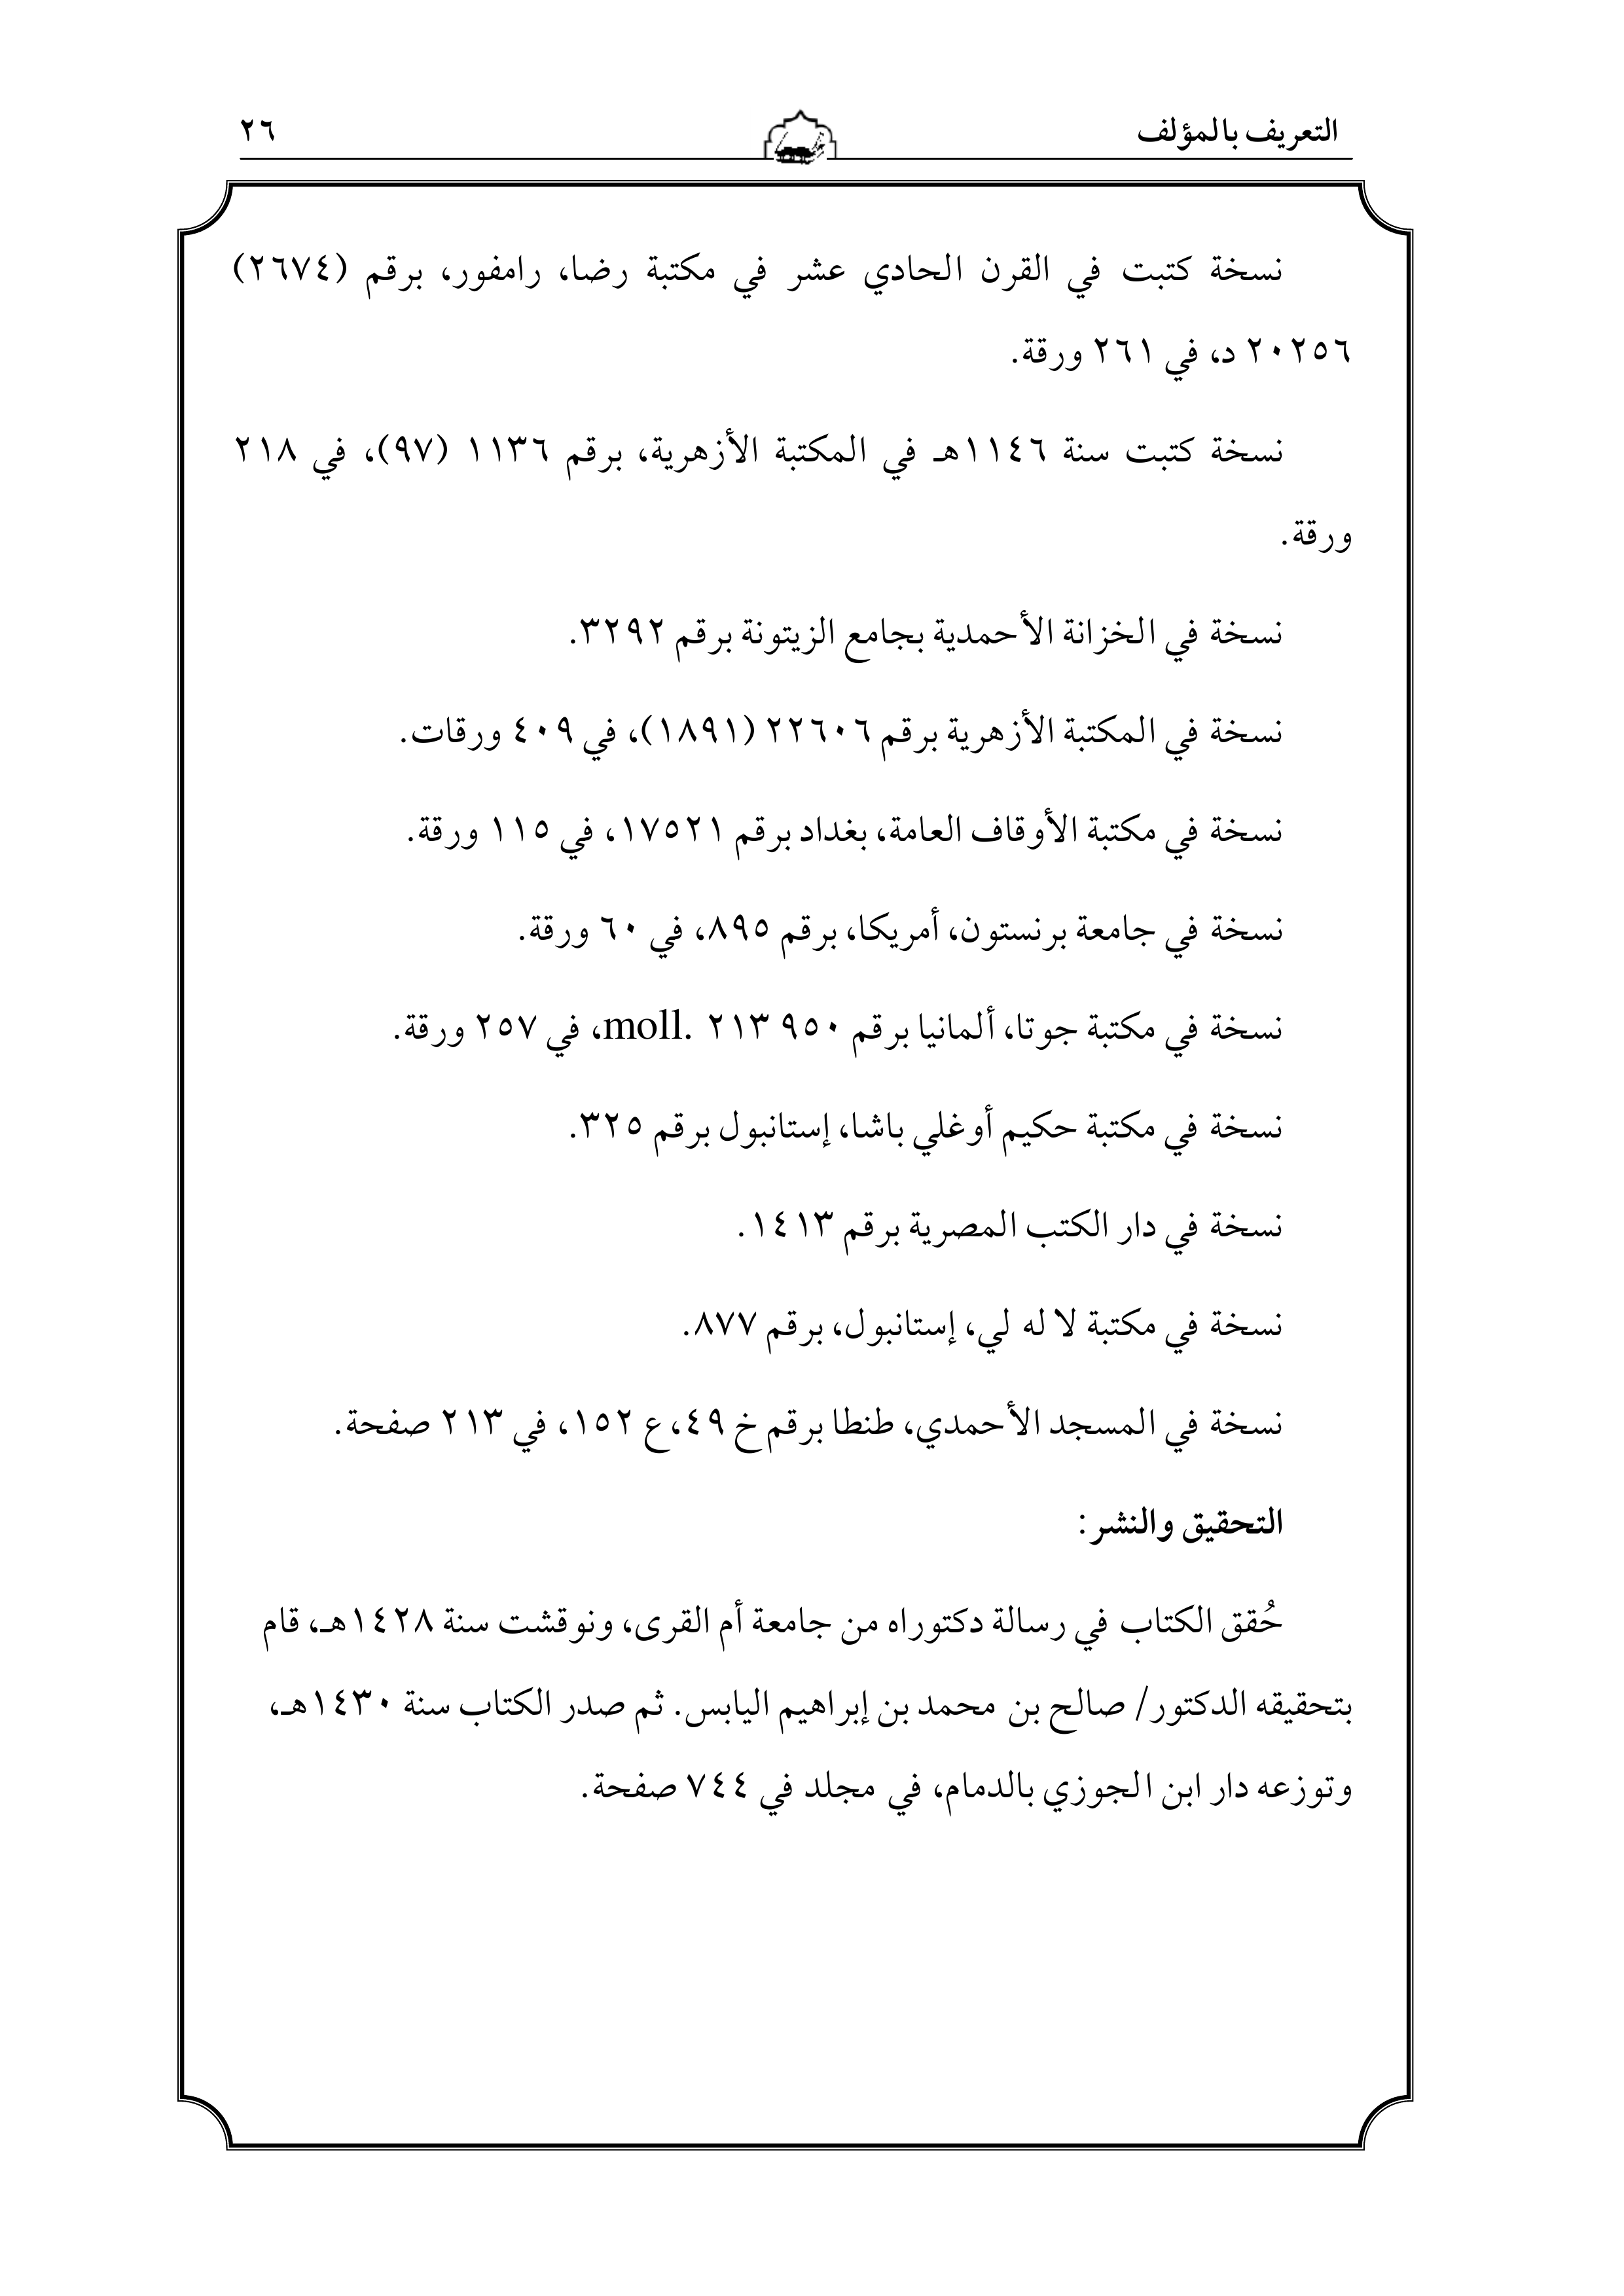 التعريف بالمؤلف ٢٦
نسخة كتبت في القرن الحادي عشر في مكتبة رضا، رامفور، برقم (٢٦٧٤)
٢٠٢٥٦ د، في ٢٦١ ورقة.
نسخة كتبت سنة ١١٤٦هـ في المكتبة الأزهرية، برقم ١١٣٦ (٩٧)، في ٢١٨
ورقة.
نسخة في الخزانة الأحمدية بجامع الزيتونة برقم ٣٢٩٢.
نسخة في المكتبة الأزهرية برقم ٢٢٦٠٦ (١٨٩١)، في ٤٠٩ ورقات.
نسخة في مكتبة الأوقاف العامة، بغداد برقم ١٧٥٢١، في ١١٥ ورقة.
نسخة في جامعة برنستون، أمريكا، برقم ٨٩٥، في ٦٠ ورقة.
نسخة في مكتبة جوتا، ألمانيا برقم ٩٥٠ ٢١٣ .moll، في ٢٥٧ ورقة.
نسخة في مكتبة حكيم أوغلي باشا، إستانبول برقم ٣٢٥.
نسخة في دار الكتب المصرية برقم ١٤١٣.
نسخة في مكتبة لا له لي، إستانبول، برقم ٨٧٧.
نسخة في المسجد الأحمدي، طنطا برقم خ ٤٩،ع ١٥٢، في ٢١٣ صفحة.
التحقيق والنشر:
حُقق الكتاب في رسالة دكتوراه من جامعة أم القرى، ونوقشت سنة ١٤٢٨هـ، قام
بتحقيقه الدكتور/ صالح بن محمد بن إبراهيم اليابس. ثم صدر الكتاب سنة ١٤٣٠هـ،
وتوزعه دار ابن الجوزي بالدمام، في مجلد في ٧٤٤ صفحة.